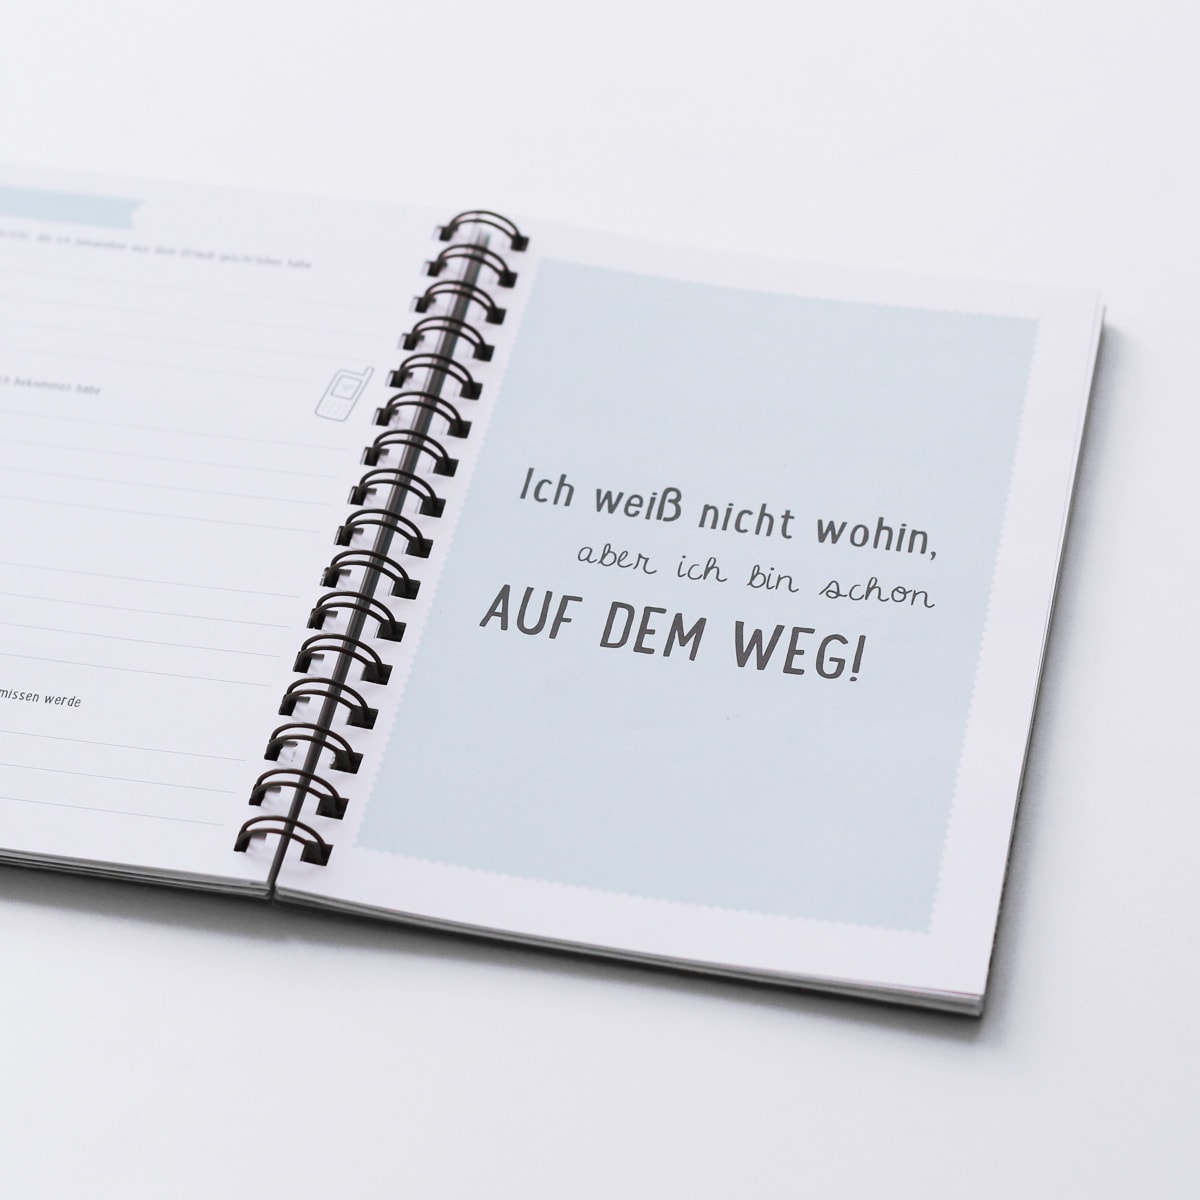 die ich jemandem aus dem Urlaub geschrieben habe
ch bekommen habe
missen werde
Ich weiß nicht wohin,
aber ich bin schon
AUF DEM WEG!